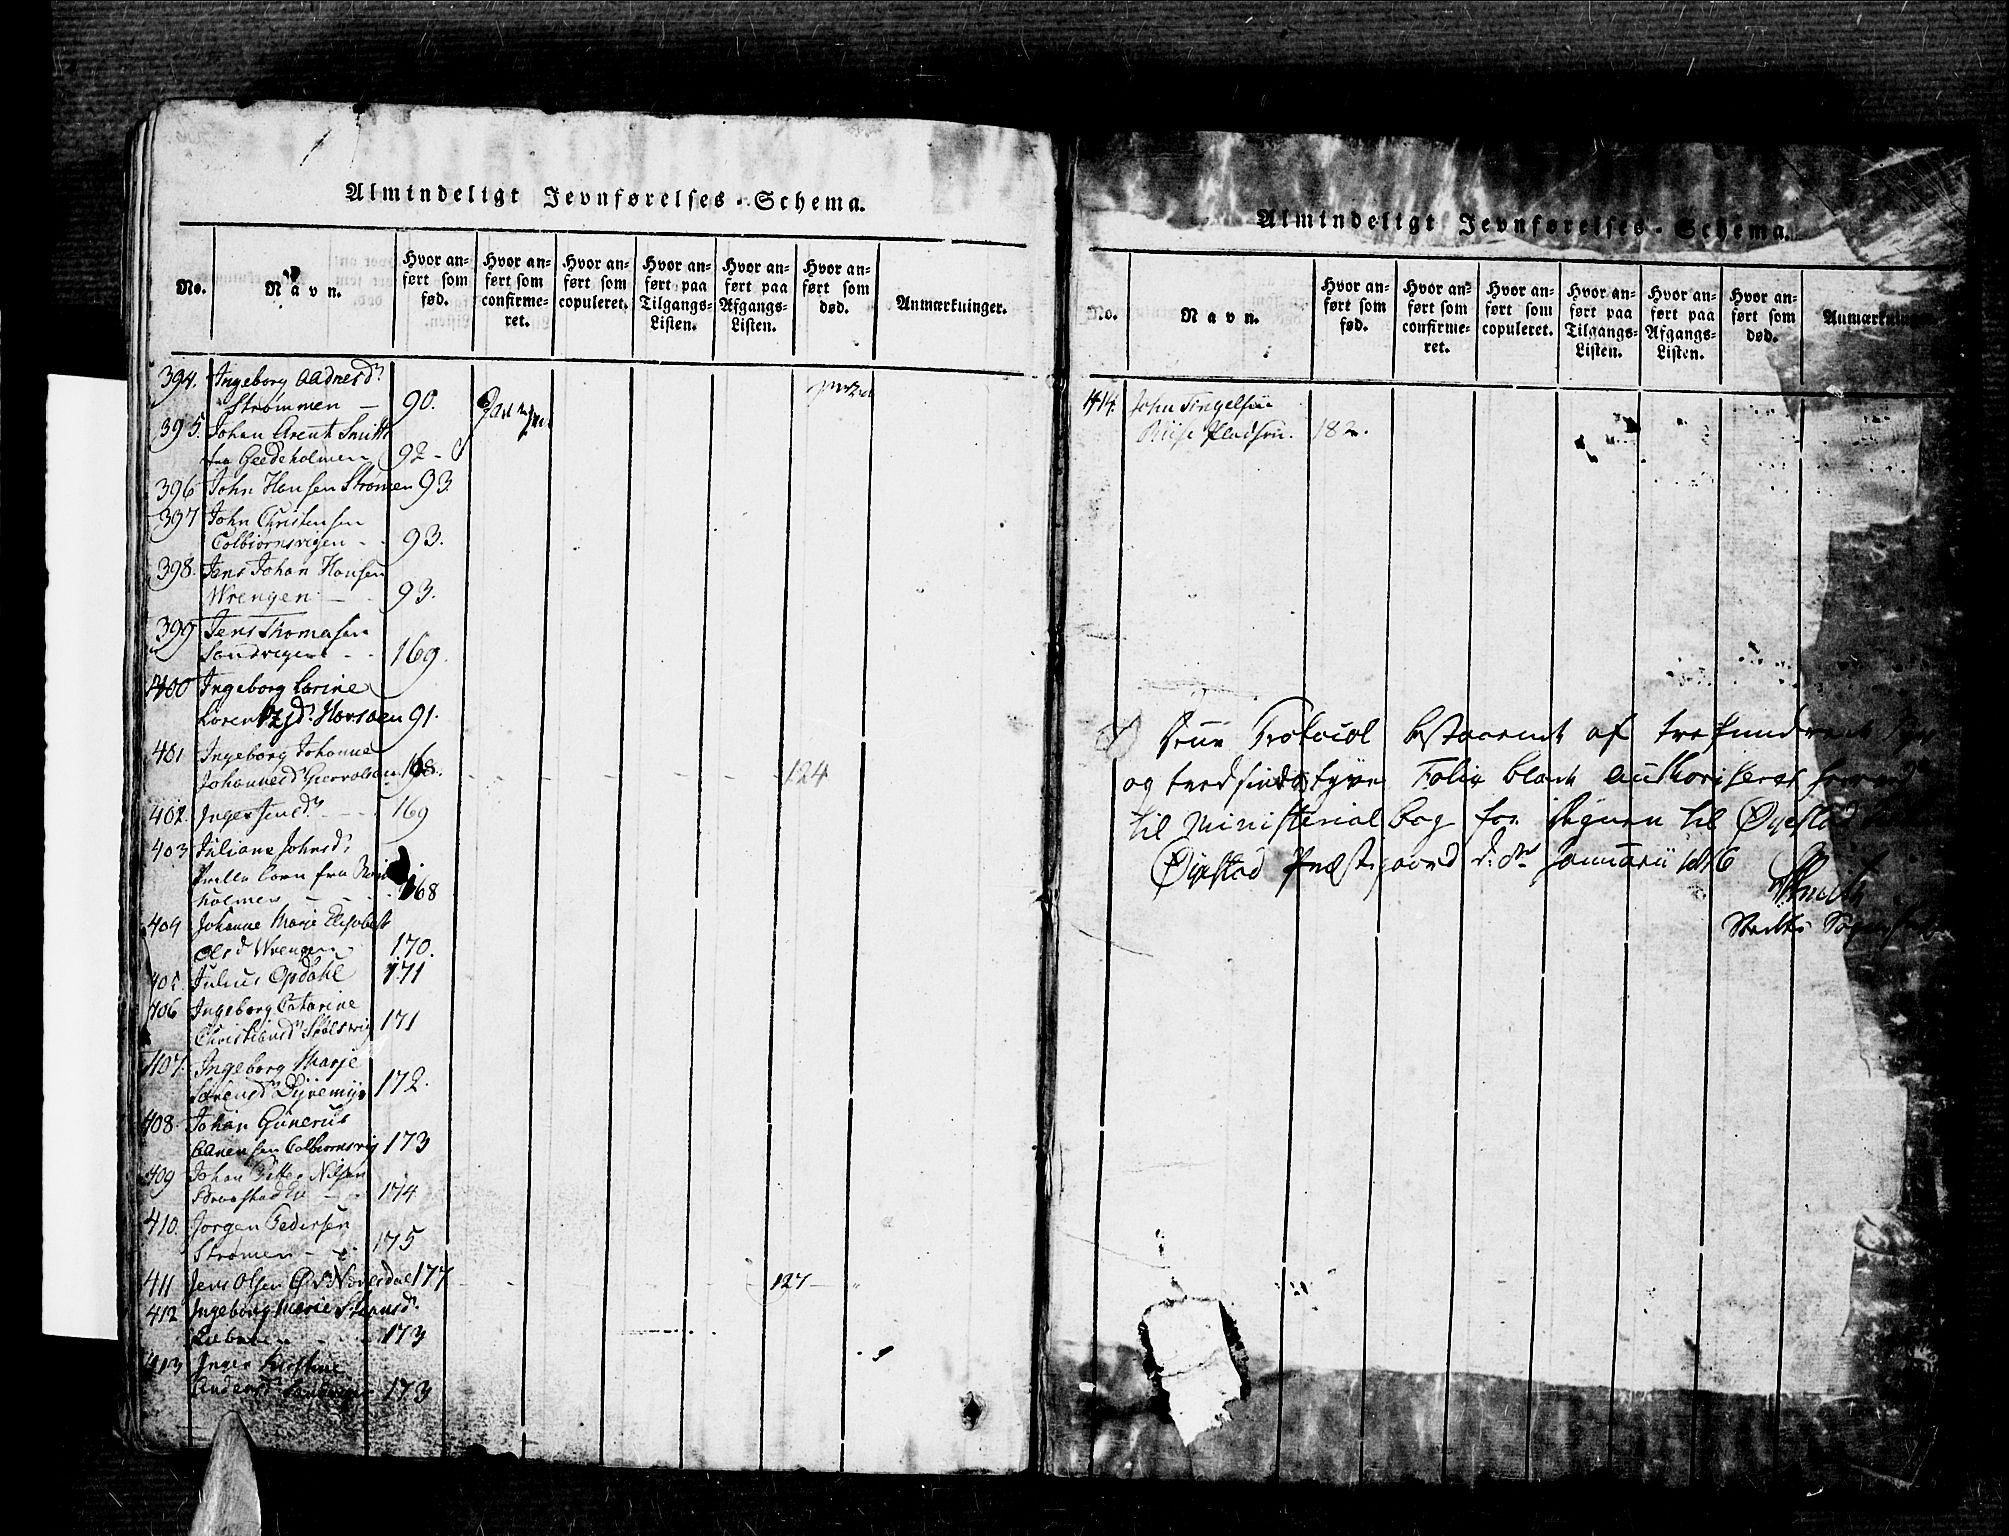 Almindeligt Jevnførelses-Schema.
No.
Navn.
Hvor anført som fød.
Hvor anført som confirmeret.
Hvor anført som copuleret.
Hvor anført paa Tilgangs-Listen.
Hvor anført paa Afgangs-Listen.
Hvor anført som død.
Anmærkninger.
394. Ingeborg Aadnesd.
Strømmen — 90.
395. Johan Arent Smith
fra Geedeholmen 92
396 John Hansen Strømen 93.
397 John Christensen
Colbiornsvigen - - 93.
398. Jens Johan Hansen
Wrengen — - 93.
399 Jens Thomasen
Sandvigen - - 169.
400 Ingeborg Carine
Lorentzd. 91.
401 Ingeborg Johanne
Johannesd. 168. 124
402. Inger Jensd. - - - 169
403 Juliane Johnsd.
fra
holmen - - - 168
404 Johanne Marie Elisabeth
Olsd Wrengen - 170.
405. Julius Opdahl 171
406 Ingeborg Catarine
Christiansd. 171
407. Ingeborg Marje
Sørensd. Dyvemyr 172.
408. Johan Gunerus
Aanensen Colbiornsvig 173
409 Johan Petter Nilsen
174
410. Jorgen Pedersen
Strømen - - 175
411 Jens Olsen 177 - - - 127 -
412 Ingeborg Marie
173
413 Inger Kirstine
Andersd. 173
Almindeligt Jevnførelses-Schema.
No.
Navn.
Hvor anført som fød.
Hvor anført som confirmeret.
Hvor anført som copuleret.
Hvor anført paa Tilgangs-Listen.
Hvor anført paa Afgangs-Listen.
Hvor anført som død.
Anmærkninger
414. John
182.
Protocol bestaaende af trehundrede
og tredsindstyve Folie blade authoriseres
til Ministerial bog for Egnen til Øyestad
Øyestad Præstegaard d. Januarii 1816